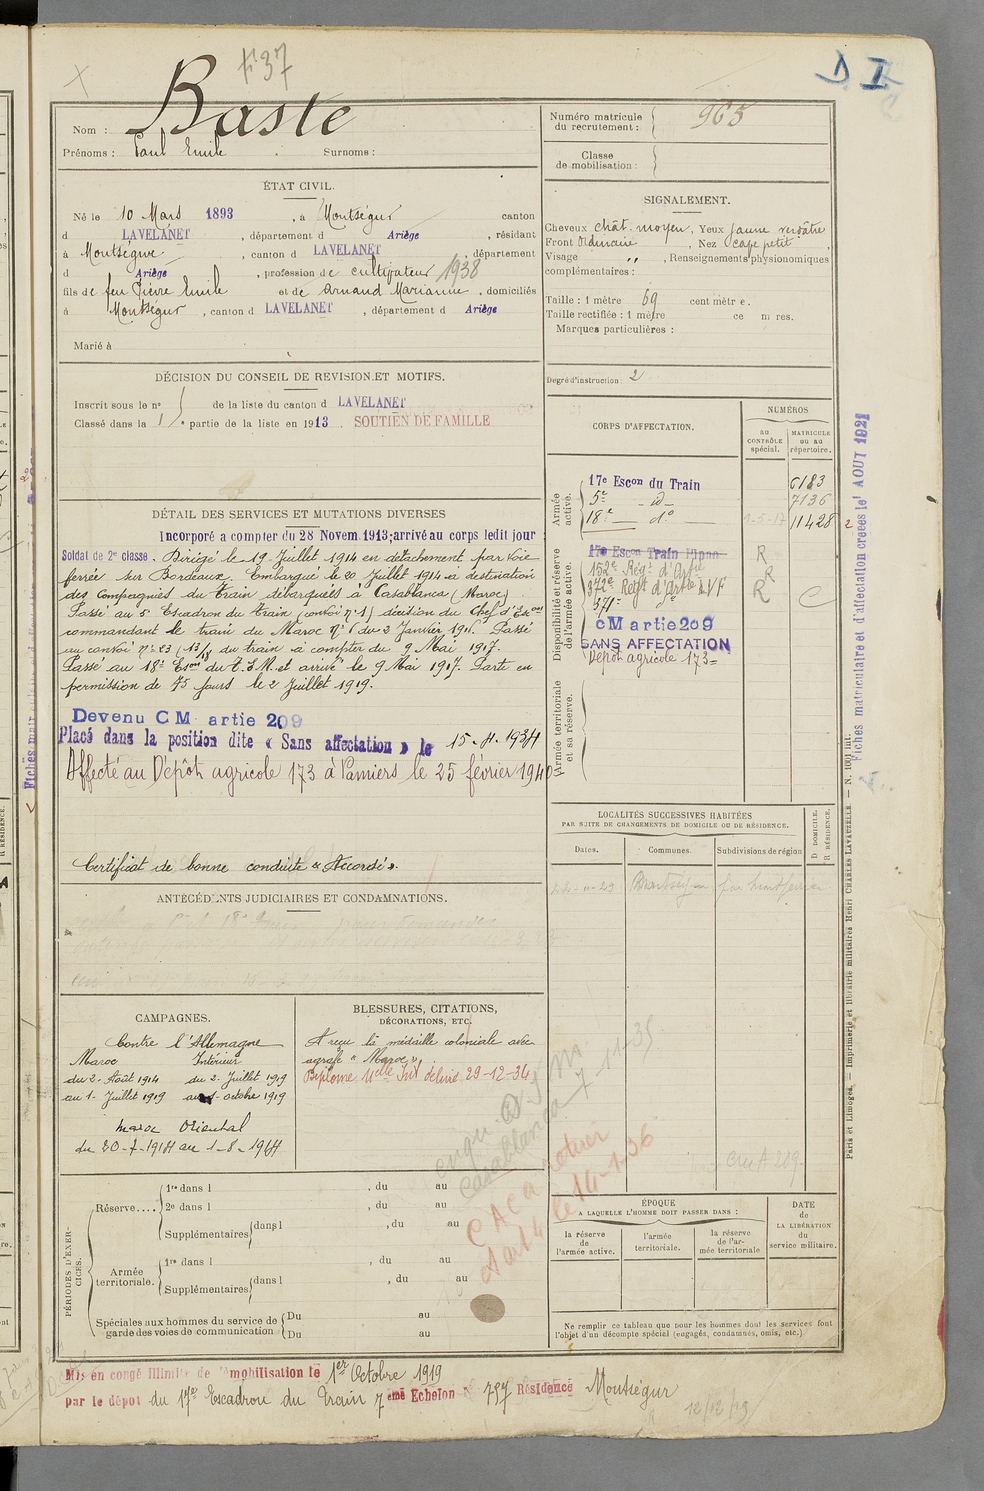 F 37
Baste
D I
Nom :
Prénoms : Paul Emile Surnoms :
Numéro matricule
du recrutement : 965
Classe
de mobilisation :
ÉTAT CIVIL.
Né le 10 Mars 1893, à Montségur canton
d LAVELANET, département d Ariège, résidant
à Montségur, canton d LAVELANET, département
d Ariège, profession de cultivateur 1938
fils de feu Pierre Emile et de Arnaud Marianne, domiciliés
à Montségur, canton d LAVELANET, département d Ariège
Marié à
SIGNALEMENT.
Cheveux chât. moyen, Yeux jaune verdâtre
Front Ordinaire, Nez cave petit,
Visage " , Renseignements physionomiques
complémentaires :
Taille : 1 mètre 69 centimètre.
Taille rectifiée : 1 mètre ce m res.
Marques particulières :
Degré d'instruction : 2
DÉCISION DU CONSEIL DE REVISION ET MOTIFS.
Inscrit sous le n° de la liste du canton d LAVELANET
Classé dans la 1re partie de la liste en 1913 SOUTIEN DE FAMILLE
DÉTAIL DES SERVICES ET MUTATIONS DIVERSES
Incorporé a compter du 28 Novem. 1913; arrivé au corps ledit jour
Soldat de 2e classe. Dirigé le 19 Juillet 1914 en détachement par voie
ferrée sur Bordeaux. Embarqué le 20 Juillet 1914 à destination
des Compagnies du train débarquées à Casablanca (Maroc)
Passé au 5e Escadron du train (convoi n° 1) décision du Chef d'Escon
commandant le train du Maroc n° 1 du 2 Janvier 191. Passé
au convoi n° 23 (13/18 du train à compter du 9 Mai 1917.
Passé au 18e Escon du t.E.M. et arrivé le 9 Mai 1917. Parte en
permission de 75 jours le 2 Juillet 1919.
Devenu C M artie 209
Placé dans la position dite « Sans affectation » le 15-4-1934
Affecté au Dépôt agricole 173 à Pamiers le 25 février 1940
Certificat de bonne conduite « Accordé ».
CORPS D'AFFECTATION.
NUMÉROS
au
CONTRÔLE
spécial.
MATRICULE
ou au
répertoire.
Armée
active.
17e Escon du Train 6183
5e - d - 7136
18e - d° 1-5-17 11428
Disponibilité et réserve
de l'armée active.
17e Escon Train Hippo R
152e Régt d'Artie R
372e Régt d'Artie LVF R C
371e d°
CM artie 209
SANS AFFECTATION
Dépôt agricole 173
Armée territoriale
et sa réserve.
Fiches matriculaire et d'affectation créées le 1 AOUT 1921
Paris et Limoges. — Imprimerie et librairie militaires Henri CHARLES-LAVAUZELLE. — N. 1001 int.
LOCALITÉS SUCCESSIVES HABITÉES
PAR SUITE DE CHANGEMENTS DE DOMICILE OU DE RÉSIDENCE.
Dates. Communes. Subdivisions de région
D DOMICILE.
R RÉSIDENCE.
Montségur
CMA 209
ANTÉCÉDENTS JUDICIAIRES ET CONDAMNATIONS.
CAMPAGNES.
Contre l'Allemagne
Maroc Intérieur
du 2 Août 1914 du 2 Juillet 1919
au 1 Juillet 1919 au 1 octobre 1919
Maroc Oriental
du 20-7-1914 au 1-8-1914
BLESSURES, CITATIONS,
DÉCORATIONS, ETC.
A reçu la médaille coloniale avec
agrafe « Maroc ».
Diplôme délivré 29-12-34
Casablanca 7-11-35
14-1-36
PÉRIODES D'EXERCICES.
Réserve....
1re dans l , du au
2e dans l , du au
Supplémentaires dans l , du au
Armée
territoriale.
1re dans l , du au
Supplémentaires dans l , du au
Spéciales aux hommes du service de
garde des voies de communication
Du au
Du au
ÉPOQUE
A LAQUELLE L'HOMME DOIT PASSER DANS :
la réserve
de
l'armée active.
l'armée
territoriale.
la réserve
de l'armée territoriale
DATE
de
LA LIBÉRATION
du
service militaire.
Ne remplir ce tableau que pour les hommes dont les services font
l'objet d'un décompte spécial (engagés, condamnés, omis, etc.)
Mis en congé illimité de démobilisation le 1er Octobre 1919
par le dépot du 17e Escadron du Train 7eme Echelon n° 797 Résidence Montségur
12/12/19